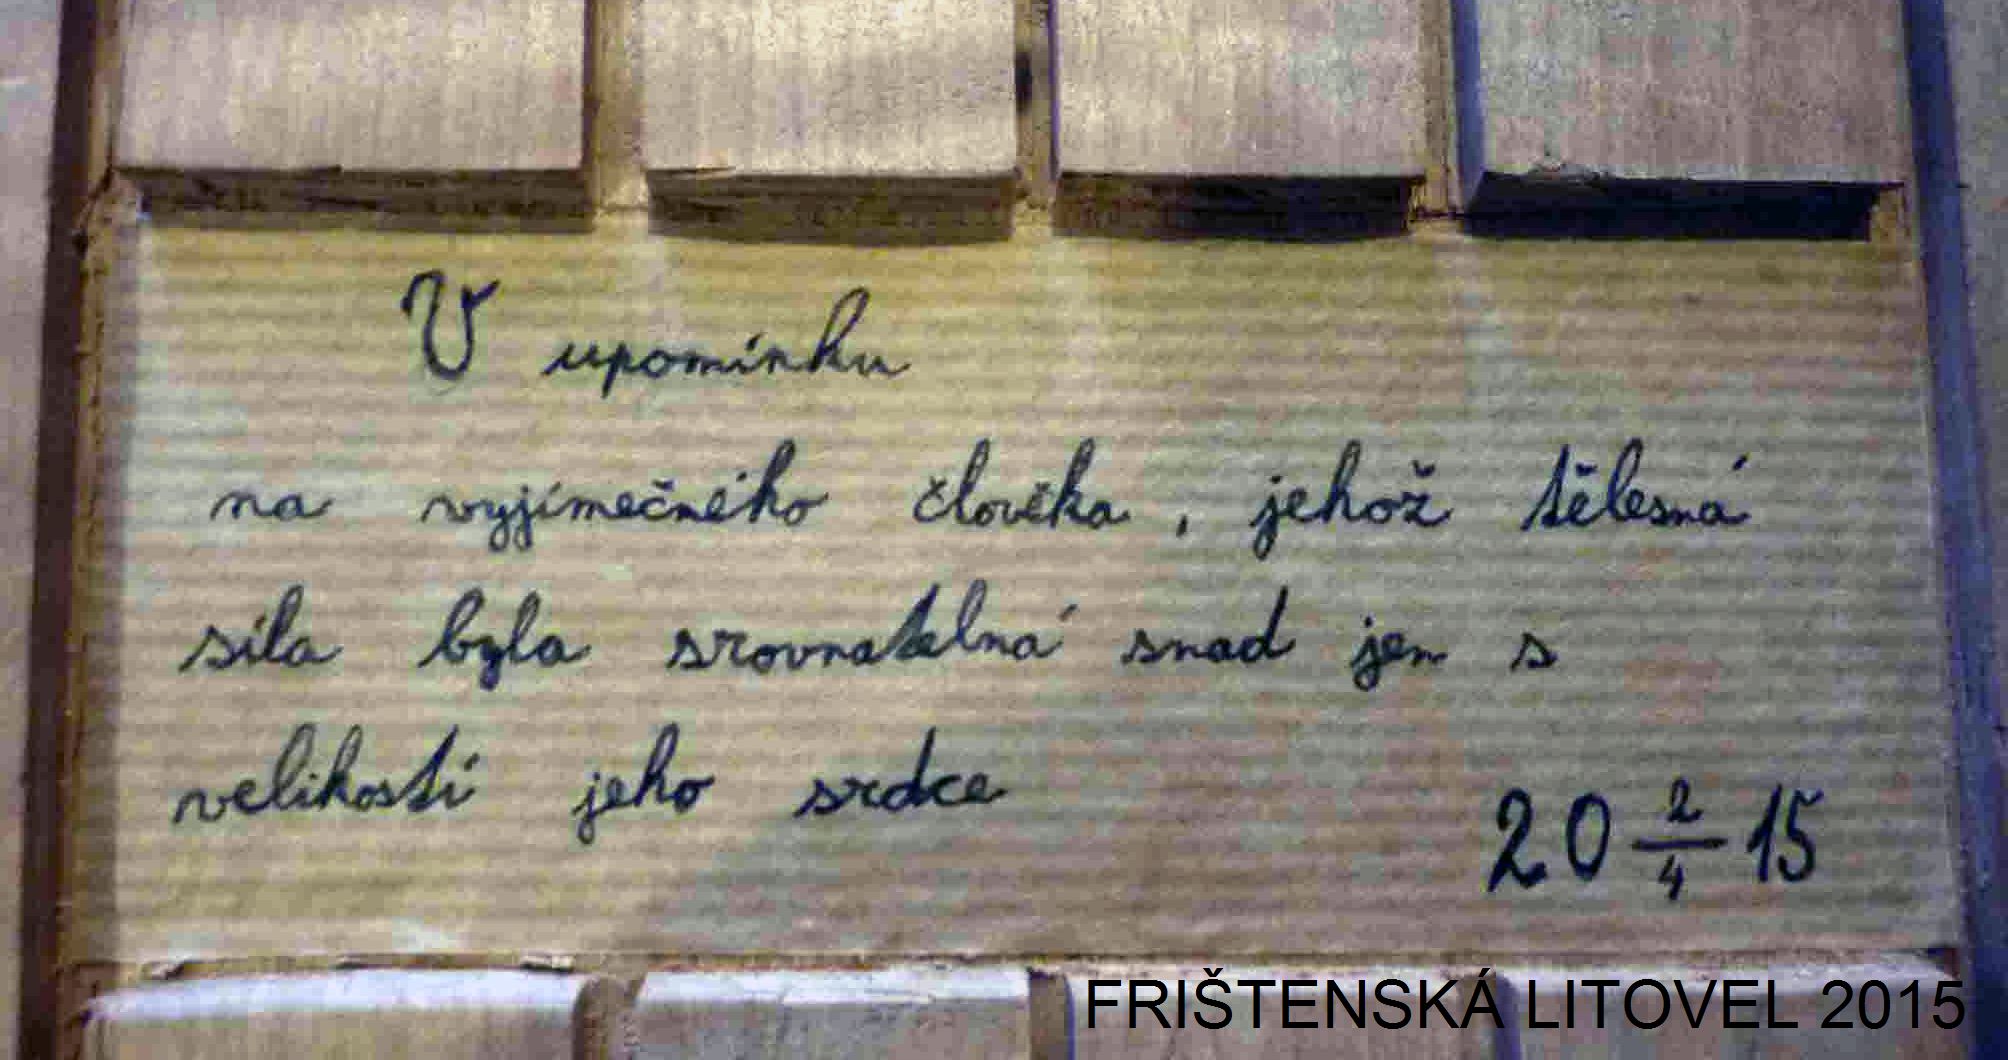 V upomínku
na vyjímečného člověka, jehož tělesná
síla byla srovnatelná snad jen s
velikostí jeho srdce
20 2/4 15
FRIŠTENSKÁ LITOVEL 2015